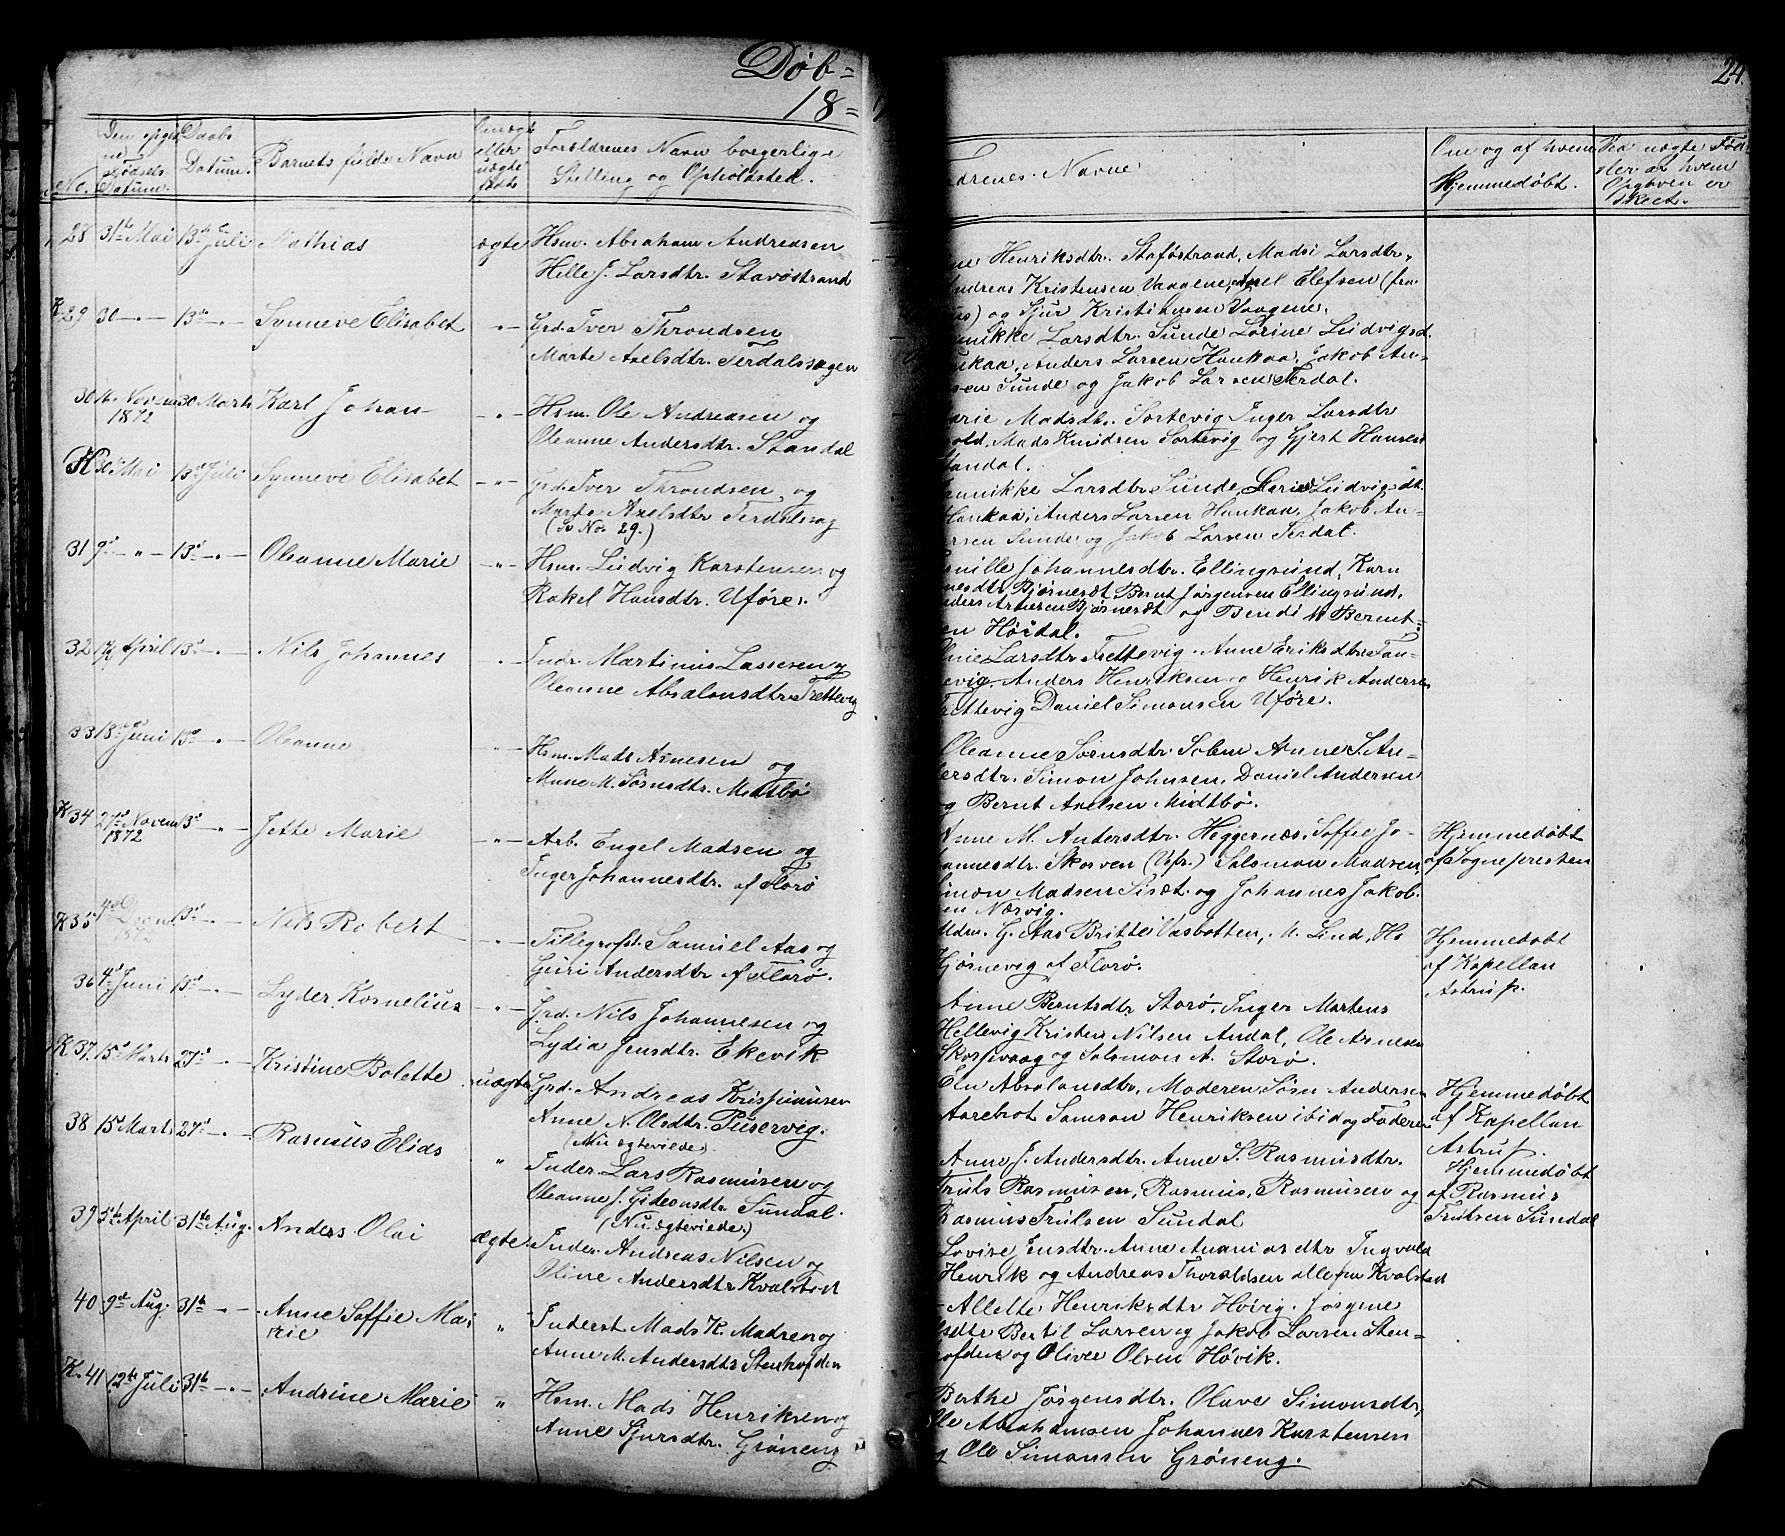 Döb=
18=
24.
No.
Datum.
Daabs
Datum.
Barnets fulde Navn
eller
uægte
Forældrenes Navn borgerlige
Stilling og Opholdsted.
Navne
Om og af hvem
Hjemmedøbt.
Ved uægte Föd-
sler af hvem
Opgaven er
skeet.
28 31te Mai 13de Juli Mathias ægte Hsm. Abraham Andreasen
Hille J. Larsdtr. Stavöstrand
Henriksdtr. Staföstrand, Madsi Larsdtr,
Kristensen Vaagene, Axel Elefsen (fra
og Sjur Kristensen Vaagene.
K 29 30 — " — 13de — " — Synneve Elisabet — " — Grd. Iver Throndsen
Marte Axelsdtr. Terdalsægen
Larsdtr. Sunde Lovine Ludvigsd.
Anders Larsen Haukaa, Jakob An-
Sunde og Jakob Larsen Terdal.
30 16. Novem 1872 30 Marts Karl Johan — " — Hsm. Ole Andreasen og
Oleanne Andersdtr. Standal
Madsdtr. Sortevig Inger Larsdtr
Mads Knudsen Sortevig og Gjert Hansen
Standal.
Mai 13de Juli Synneve Elisabet — " — Grd. Iver Throndsen og
Marte Axelsdtr Terdalsæg
(Se No. 29.)
Larsdtr Sunde, Ludvigsdt.
Haukaa, Anders Larsen Haukaa, Jakob An-
Sunde og Jakob Larsen Terdal.
31 9de — " — 13de — " — Oleanne Marie — " — Hsm. Ludvig Karstensen og
Rakel Hansdtr. Uföre.
Johannesdtr. Ellingsund, Karn
Bjørneset Bernt Jørgensen Ellingsund,
Bjørneset og Bendi M Bernt-
sen Höidal.
32 April 13de — " — Nils Johannes — " — Inder. Martinus Lassesen og
Oleanne Absalonsdtr. Trettevig
Larsdtr Trettevig. Anne Eriksdtr. Tan-
Anders Henriksen og Henrik Andersen
Trettevig Daniel Simonsen Uföre.
33 18de Juni 13de — " — Oleanne — " — Hsm. Mads Arnesen og
Anne M. Sörnsdtr. Midtbö
Oleanne Sörnsdtr. Anne S. An-
dersdtr. Simon Johnsen, Daniel Andersen
og Bernt Axelsen Midtbö.
K 34 27de Novem 1872 13de — " — Jette Marie — " — Arb. Engel Madsen og
Inger Johannesdtr. af Florö
Anne M. Andersdtr. Heggernæs, Soffie Jo-
hannesdtr. Skorven Salomon Madsen,
Simon Madsen og Johannes Jakob-
sen Nærvig.
Hjemmedöbt
af Sognepresten
K 35 1872 13de — " — Nils Robert — " — Samuel Aas og
Guri Andersdtr af Florö.
G. Aas Britte Vasbotten, M. Lind,
af Florö.
Hjemmedöbt
af Kapellan
Astrup.
36 4de Juni 13de — " — Lyder Kornelius — " — Grd. Nils Johannesen og
Lydia Jensdtr. Ekevik
Anne Berntsdtr Storö, Inger Martens
Hellevig Kristen Nilsen Andal, Ole Arnesen
Skorpevaag og Salomon A. Storö.
K 37 15de Marts 27de — " — Kristine Bolette uægte Grd. Andreas Krispinusen
Anne N. Olsdtr. Puservig.
(Nu ægteviede)
Eln Absalonsdtr, Moderen, Sörn Andersen
Aarebrot Samson Henriksen ibid og Faderen
Hjemmedöbt
af Kapellan
Astrup.
38 15de Marts 27de — " — Rasmus Elias " Inder. Lars Rasmusen og
Oleanne J. Gideonsdtr Sundal.
(Nu ægteviede)
Anne J. Andersdtr. Anne S. Rasmusdtr.
Truls Rasmusen, Rasmus, Rasmusen og
Rasmus Trulsen Sundal
Hjemmedöbt
af Rasmus
Trulsen Sundal
39 5te April 31te Aug. Anders Olai ægte. Inder. Andreas Nilsen og
Oline Andersdtr Kvalstad
Lovise Jensdtr. Anne Ananiasdtr Ingvald
Henrik og Andreas Thoraldsen alle paa Kvalstad
40 9de Aug. 31te — " — Anne Soffie Ma-
rie " Inderst Mads K. Madsen og
Anne M. Andersdtr Stenhofden
Allette Henriksdtr Hövig. Jörgene
Bertil Larsen og Jakob Larsen Sten-
hofden og Oliver Olsen Hövik.
K. 41 12te Juli 31te — " — Andrine Marie " Hsm. Mads Henriksen og
Anne Sjursdtr. Gröneng
Berthe Jörgensdtr. Olave Simonsdtr,
Ole Abrahamsen Johannes Karstensen
og Ole Simonsen Gröneng.